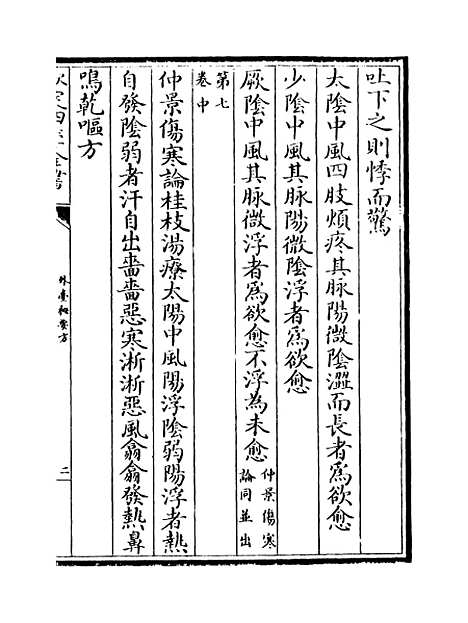 吐下之則悸而驚
太陰中風四肢煩疼其脉陽微陰澀而長者爲欲愈
少陰中風其脉陽微陰浮者爲欲愈
厥陰中風其脉微浮者爲欲愈不浮為未愈仲景傷寒論同並出
第七卷中
仲景傷寒論桂枝湯療太陽中風陽浮陰弱陽浮者熱
自發陰弱者汗自出嗇嗇惡寒淅淅惡風翕翕發熱鼻
鳴乾嘔方
外臺秘要方
二